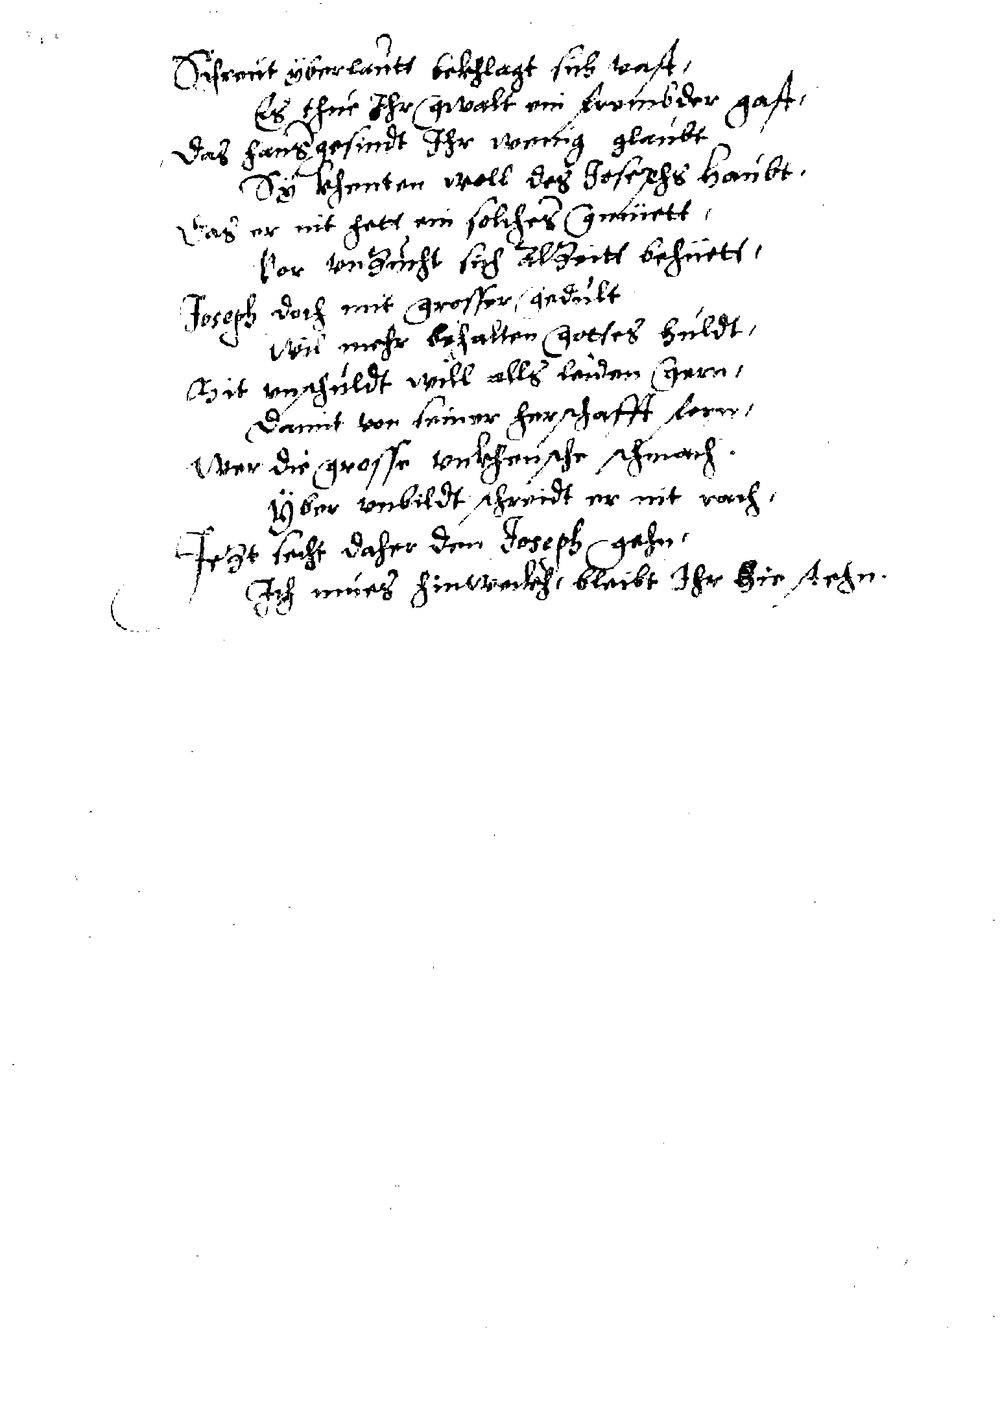 Schreüt ÿberlaütt bekhlagt sich vast,
Es thue Ihr gwalt ein frembder gast,
Das hausgesindt Ihr wenig glaubt
Sÿ khenten woll des Josephs haubt,
Das er nit hett ein solches gmüett,
Vor vnzucht sich alzeitt behüett,
Joseph doch mit grosser gedult
Wil mehr behalten gottes huldt,
Mit vnschuldt will alls leiden gern,
Damit von seiner herschafft fern,
Wer die grosse vnkheusche schmach.
Ÿber vnbildt schreidt er nit rach,
Jetzt secht daher den Joseph gehn,
Ich mues hinwekh, bleibt Ihr hie stehn.